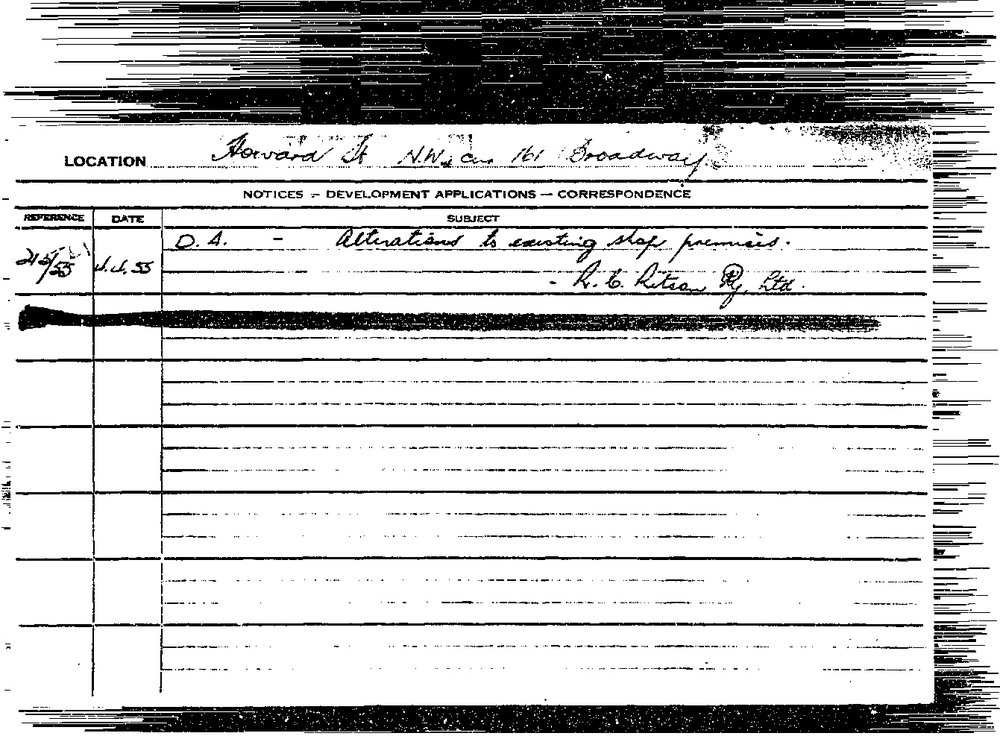 LOCATION Howard St N.W. cnr 161 Broadway
NOTICES – DEVELOPMENT APPLICATIONS – CORRESPONDENCE
REFERENCE DATE SUBJECT
D. A. - Alterations to existing shop premises.
/55 55
- R. C. Ritson Pty. Ltd.